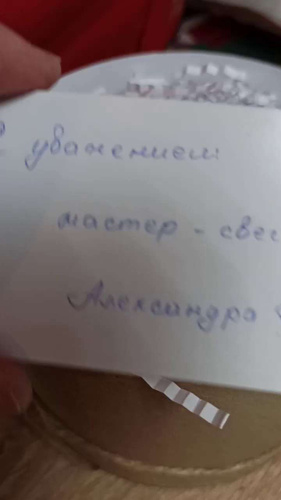 С уважением:
мастер - свеч
Александра